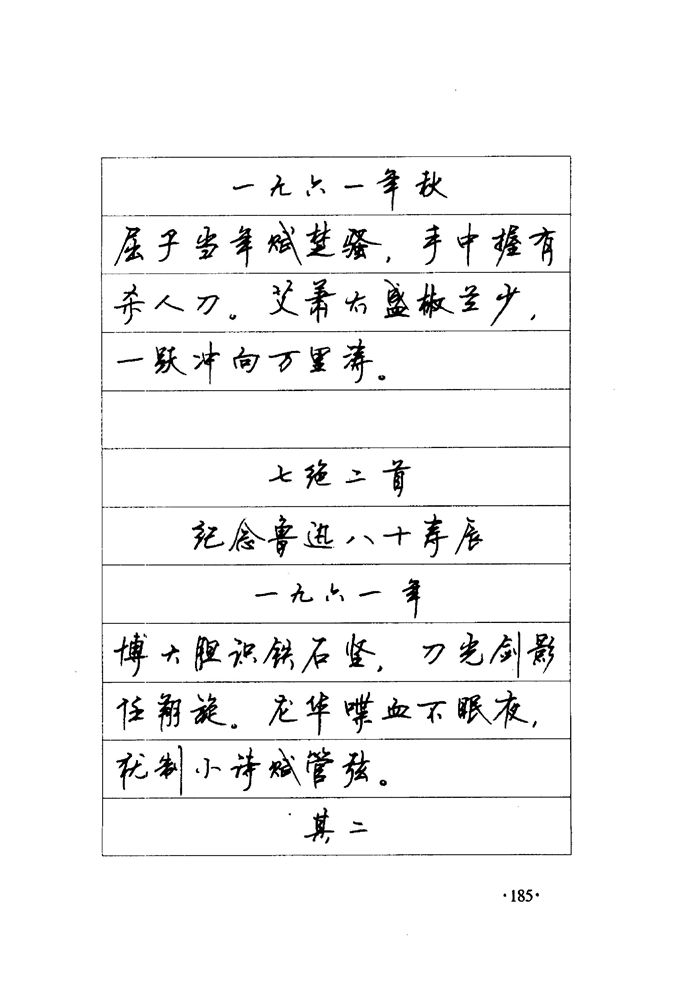 一九六一年秋
屈子当年赋楚骚，手中握有
杀人刀。艾萧太盛椒兰少，
一跃冲向万里涛。
七绝二首
纪念鲁迅八十寿辰
一九六一年
博大胆识铁石坚，刀光剑影
任翔旋。龙华喋血不眠夜，
犹制小诗赋管弦。
其二
·185·